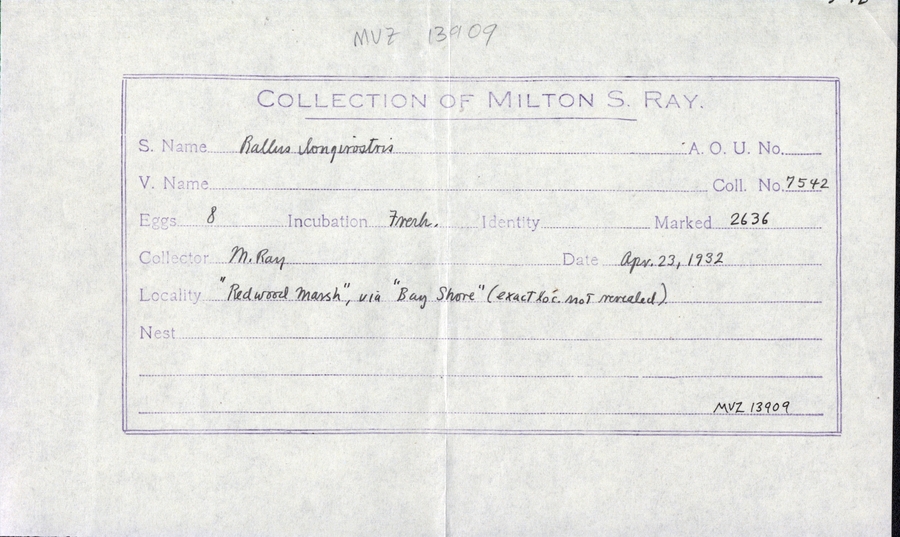 MVZ 13909
COLLECTION OF MILTON S. RAY.
S. Name Rallus longirostris A. O. U. No.
V. Name Coll. No. 7542
Eggs 8 Incubation Fresh. Identity Marked 2636
Collector M. Ray Date Apr. 23, 1932
Locality "Redwood Marsh", via "Bay Shore" (exact loc. not revealed)
Nest
MVZ 13909